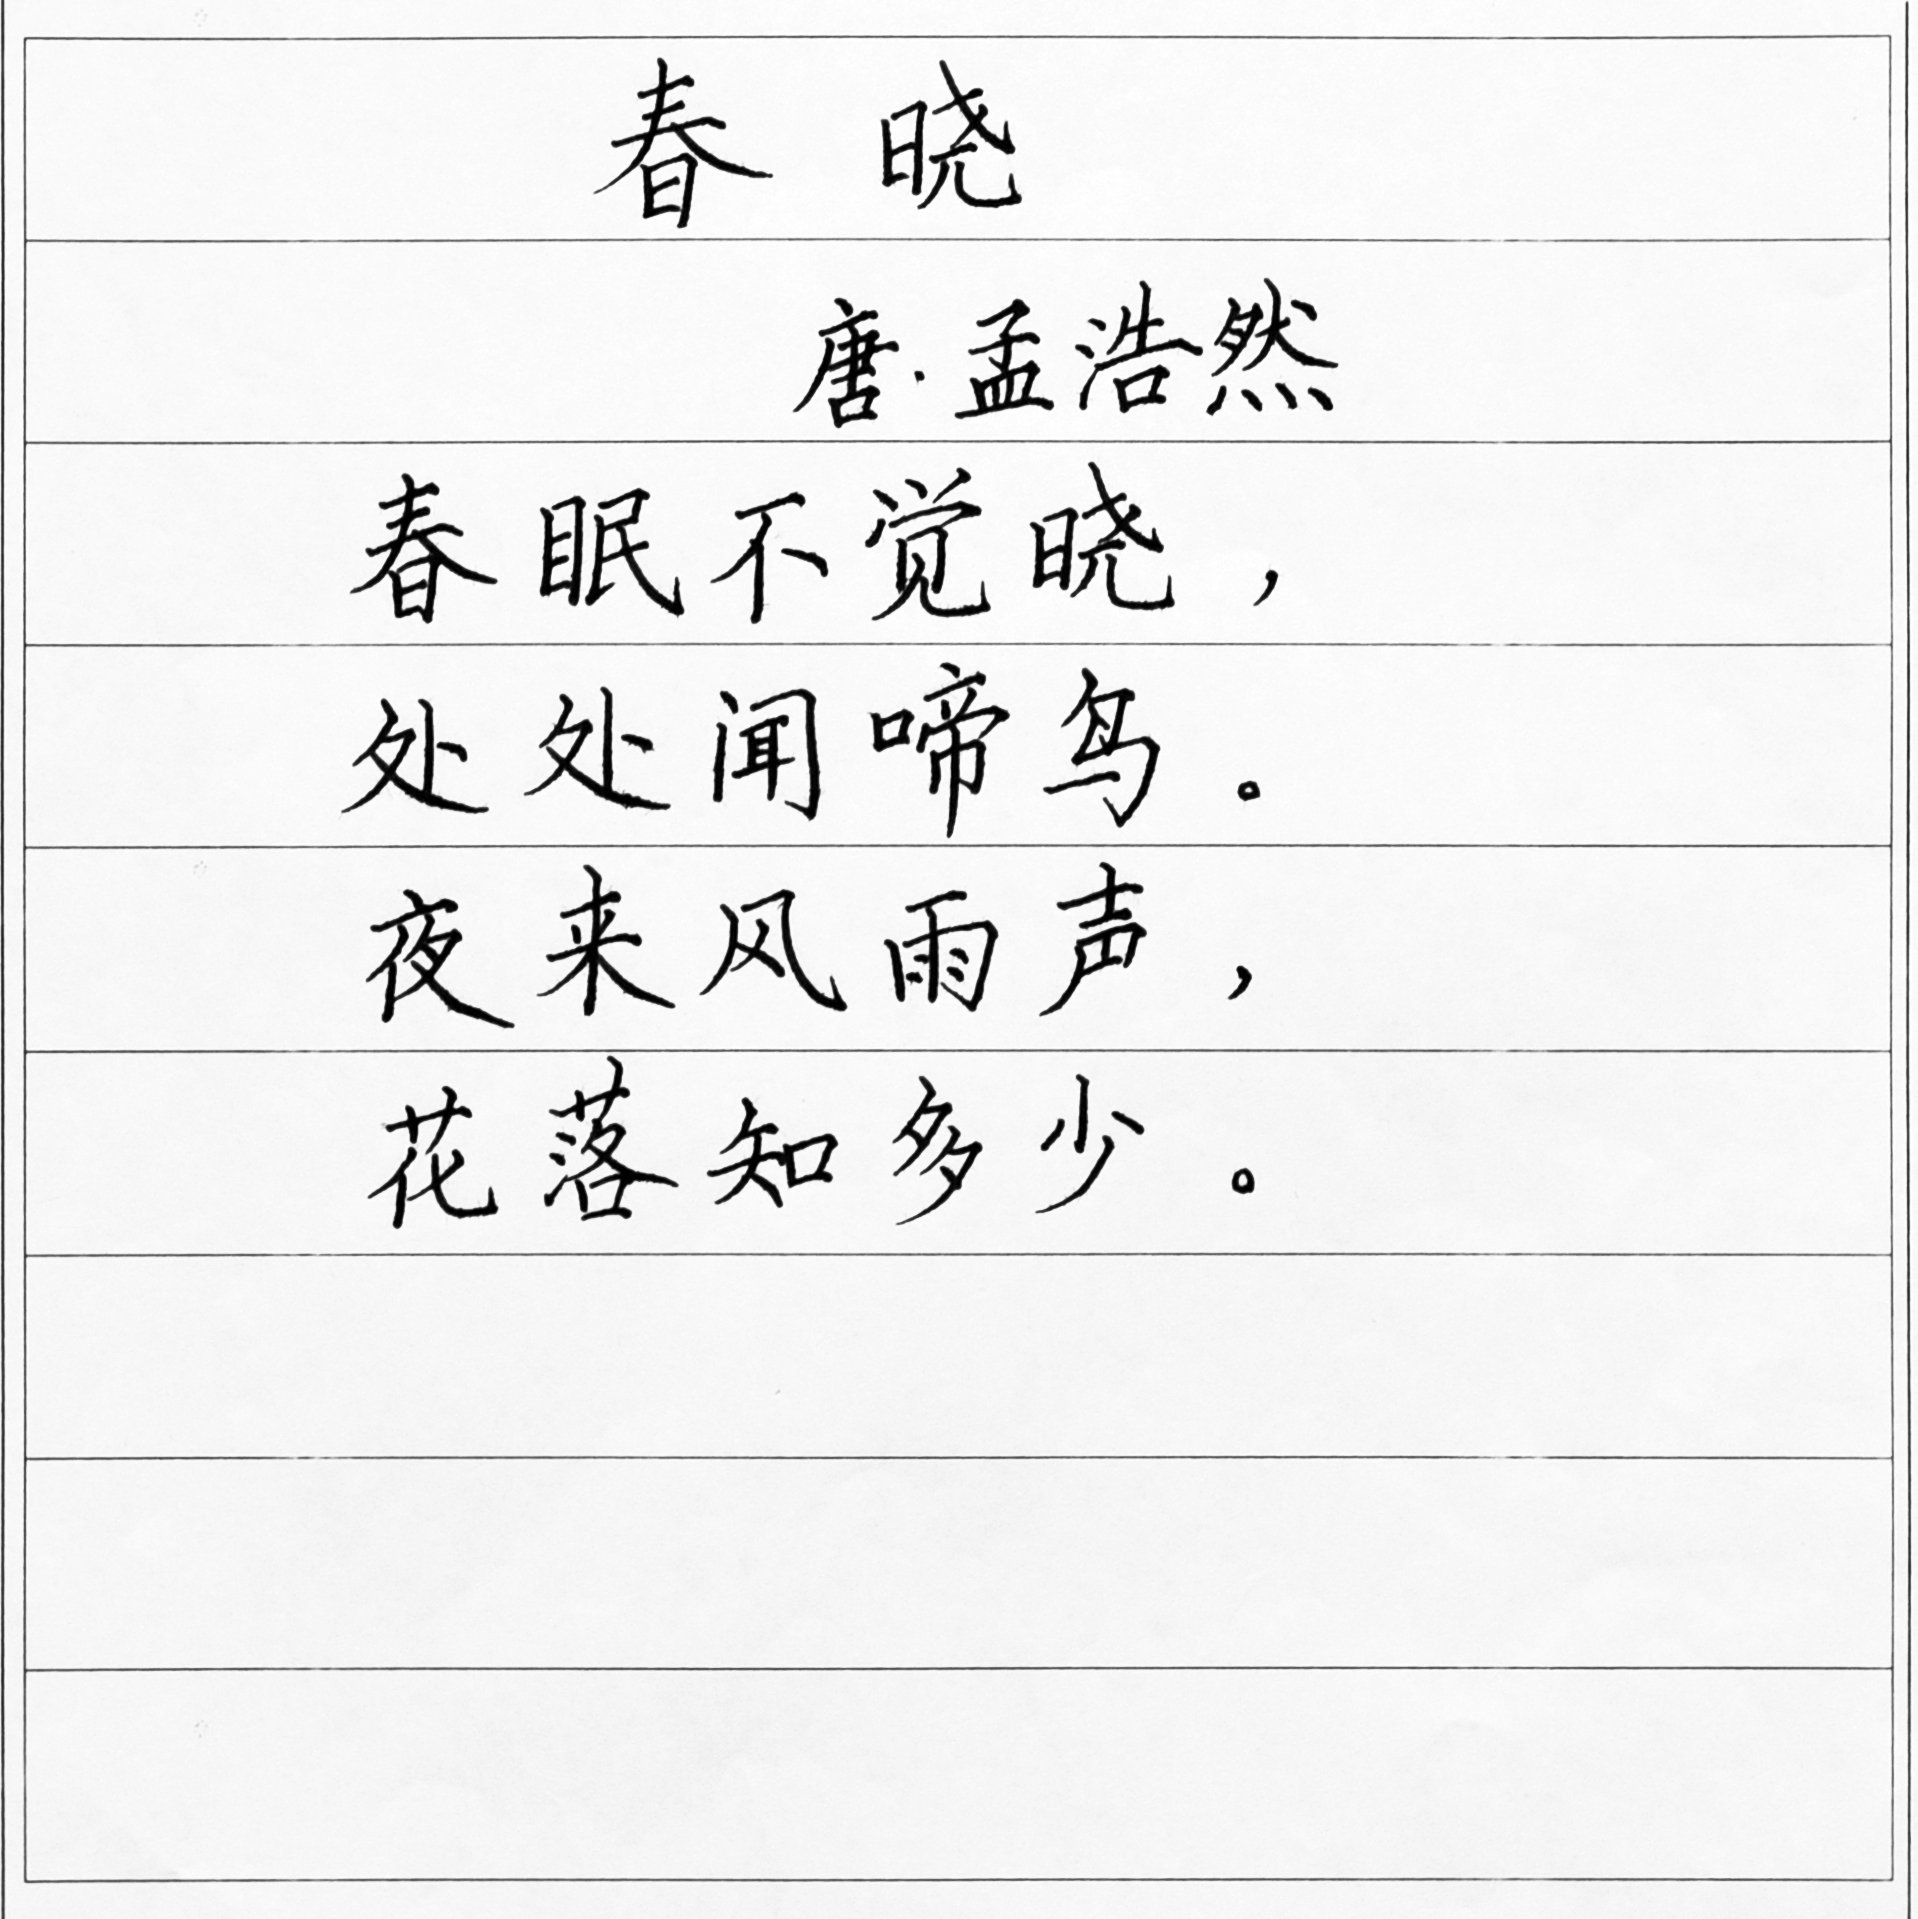 春晓
唐·孟浩然
春眠不觉晓，
处处闻啼鸟。
夜来风雨声，
花落知多少。